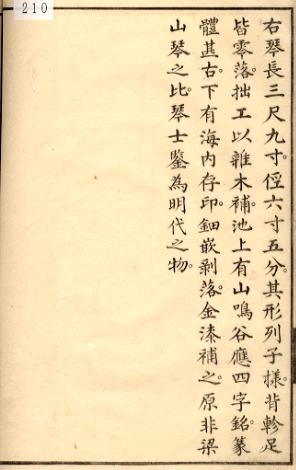 210
右琴長三尺九寸。徑六寸五分。其形列子樣。背軫足
皆零落。拙工以雜木補。池上有山鳴谷應四字銘。篆
體甚古。下有海內存印。鈿嵌剝落。金漆補之。原非梁
山琴之比。琴士鑒為明代之物。